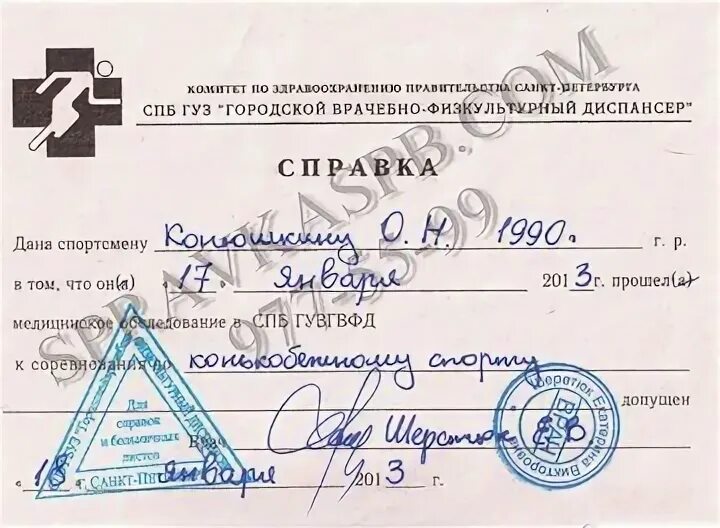 КОМИТЕТ ПО ЗДРАВООХРАНЕНИЮ ПРАВИТЕЛЬСТВА САНКТ-ПЕТЕРБУРГА
СПБ ГУЗ "ГОРОДСКОЙ ВРАЧЕБНО-ФИЗКУЛЬТУРНЫЙ ДИСПАНСЕР"
СПРАВКА
Дана спортсмену Конюшкину О. Н. 1990г. г. р.
в том, что он(а) "17" января 2013г. прошел(а)
медицинское обследование в СПБ ГУВГВФД
к соревнования по конькобежному спорту
допущен
Врач Шерстюк Е В
18 января 2013 г.
Для справок и больничных листов
г. САНКТ-ПЕТ
Шерстюк Екатерина Викторовна
ВРАЧ
SPRAVKASPB.COM
977-55-99